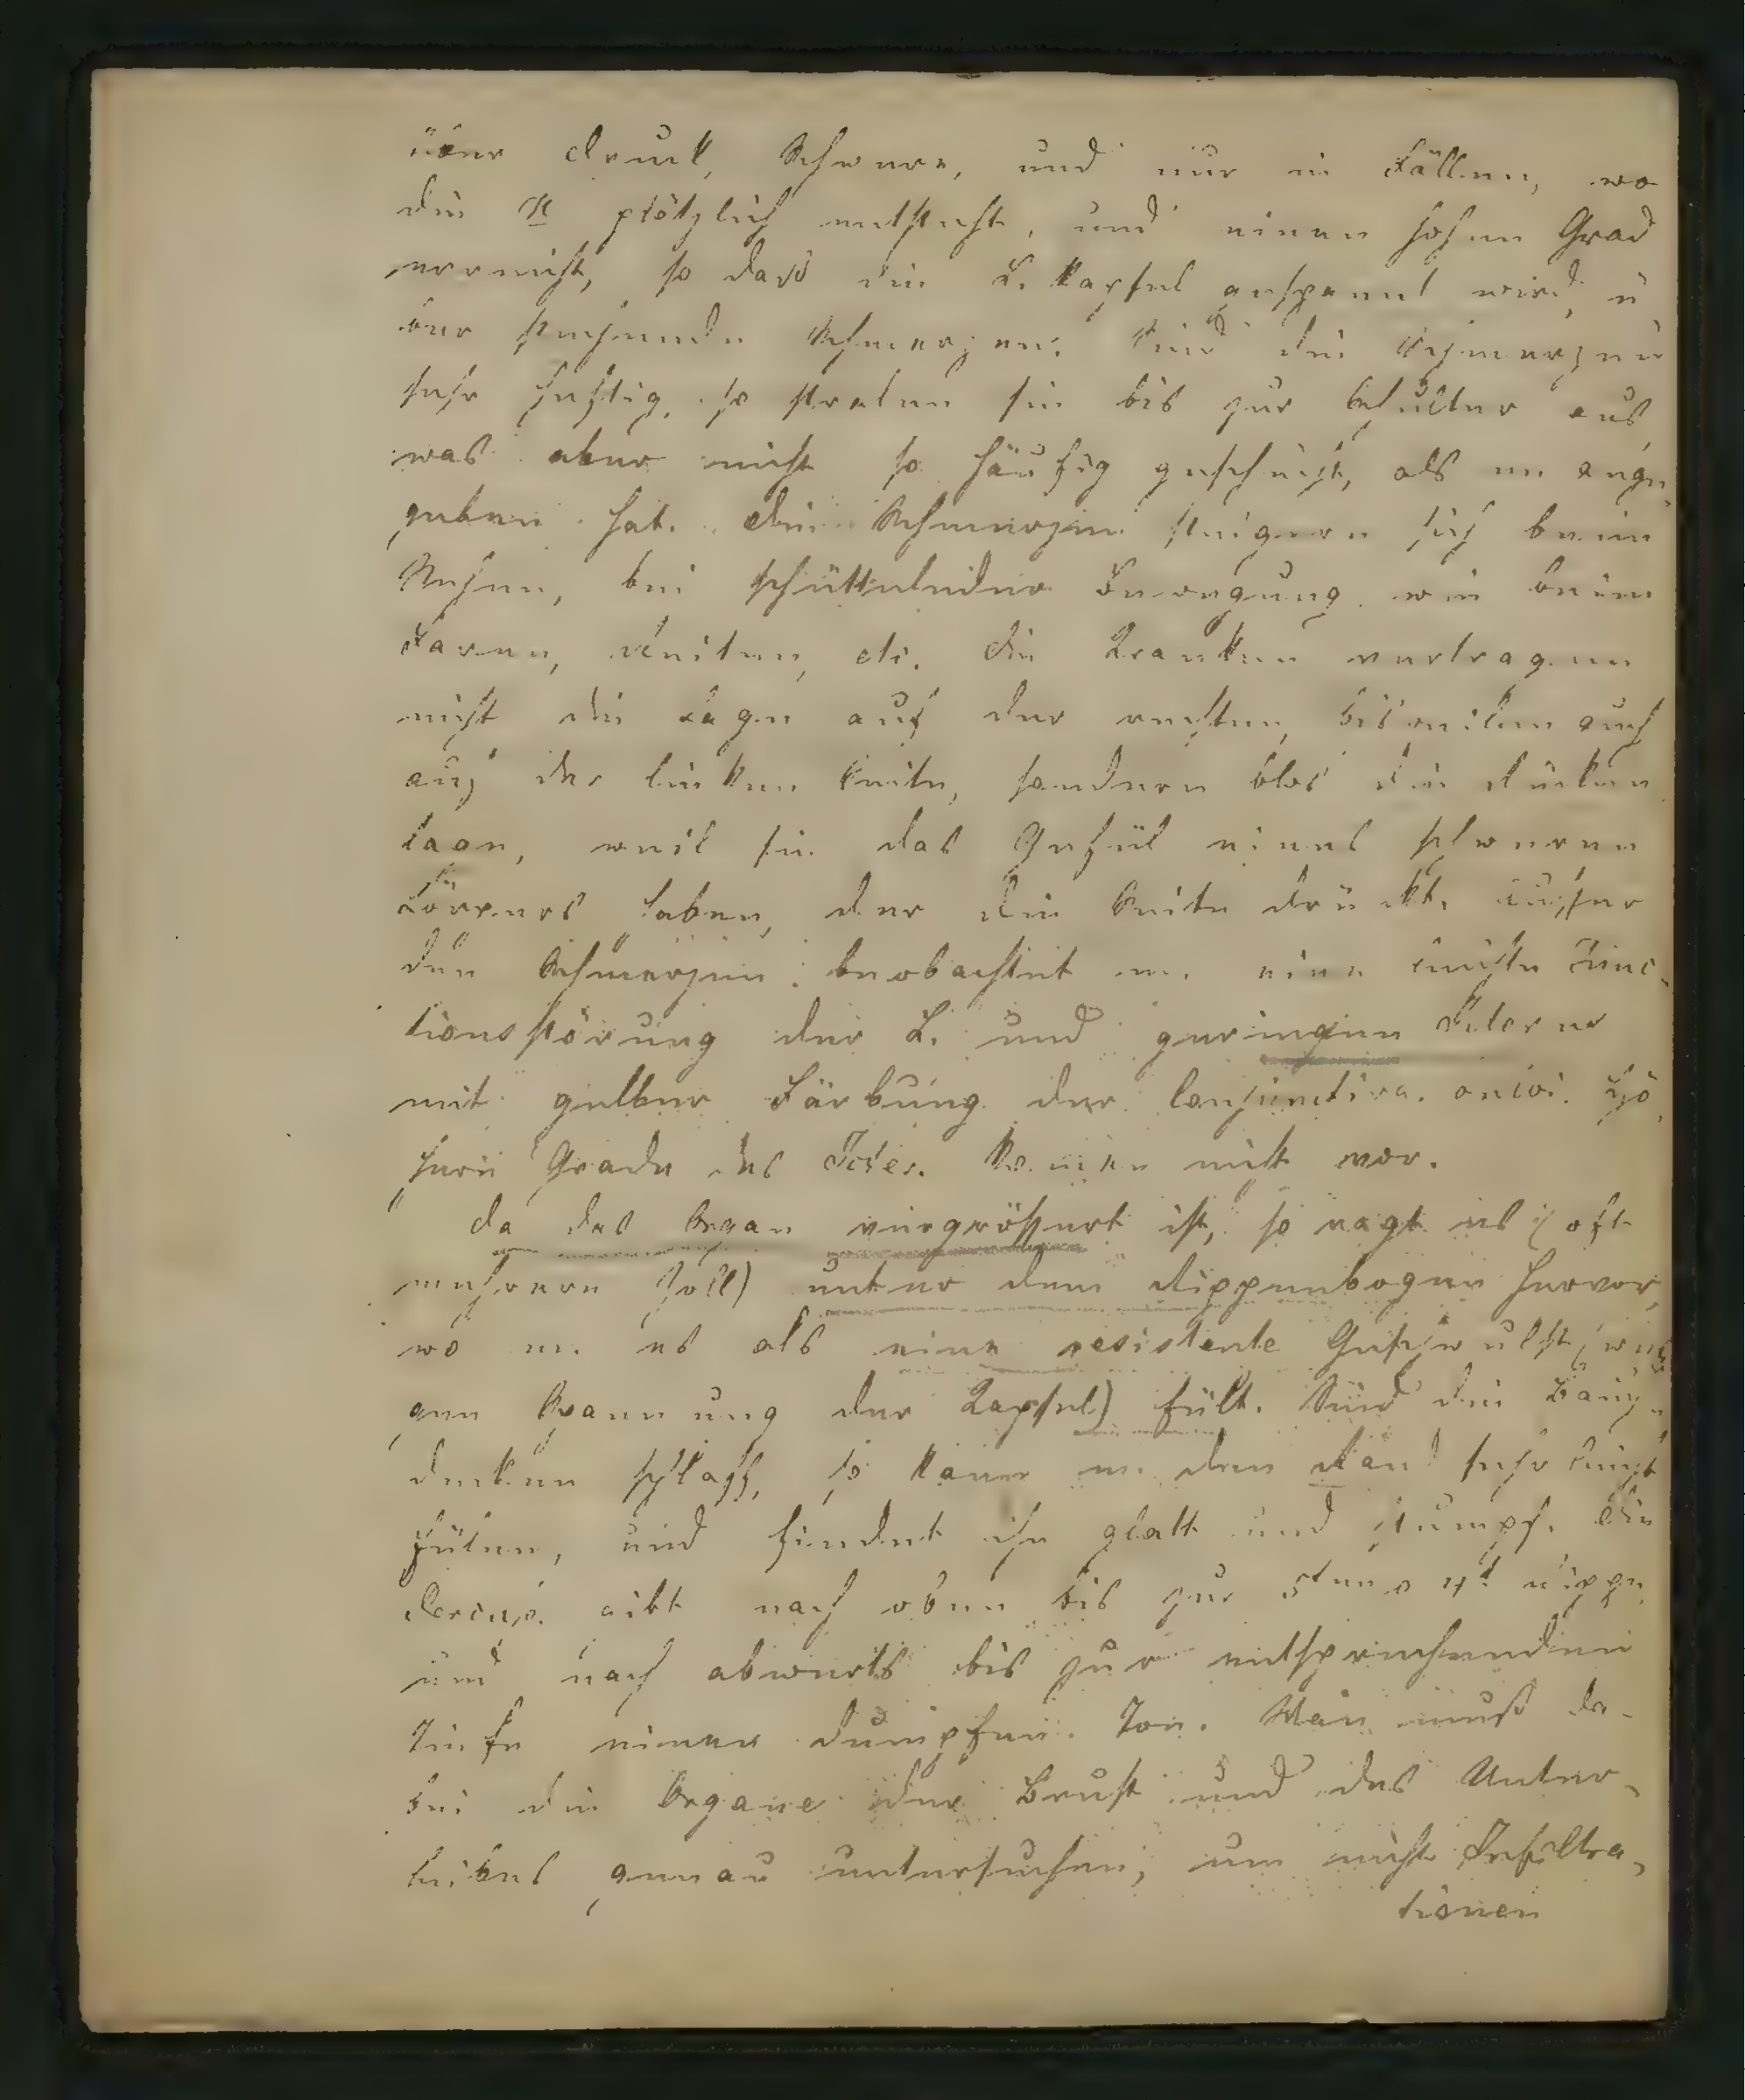 über Druck, Schwere, und nur in Fällen, wo
die H plötzlich entsteht, und einen hohen Grad
erreicht, so dass die L. Kapsel gespannt wird, ü
ber stechende Schmerzen. Sind die Schmerzen
sehr heftig, so stralen sie bis zur Schulter aus,
was aber nicht so häufig geschieht, als m. ange-
geben hat. Die Schmerzen steigern sich beim
Gehen, bei schüttelnder Bewegung wie beim
Faren, Reiten, etc. Die Kranken vertragen
nicht die Lage auf der rechten, bisweilen auch
auf der linken Seite, sondern blos die Rücken
lage, weil sie das Gefül eines schweren
Körpers haben, der die Seite drückt. Ausser
den Schmerzen beobachtet m. eine leichte Func-
tionsstörung der L. und geringen Icterus
mit gelber Färbung der Conjunctiva. Hö-
here Grade des Icter. komen nicht vor.
Da das Organ vergrössert ist, so ragt es (oft
mehrere Zoll) unter dem Rippenbogen hervor,
wo m. es als eine resistente Geschwulst (we-
gen Spannung der Kapsel) fült. Sind die Bauch-
decken schlaff, so kann m. den Rand sehr leicht
fülen, und findet ihn glatt und stumpf. Die
Percus. gibt nach oben bis zur 5ten o 4t. Rippe,
und nach abwerts bis zur entsprechenden
Tiefe einen dumpfen Ton. Man muß da-
bei die Organe der Brust und des Unter-
leibes genau untersuchen, um nicht Infiltra-
tionen